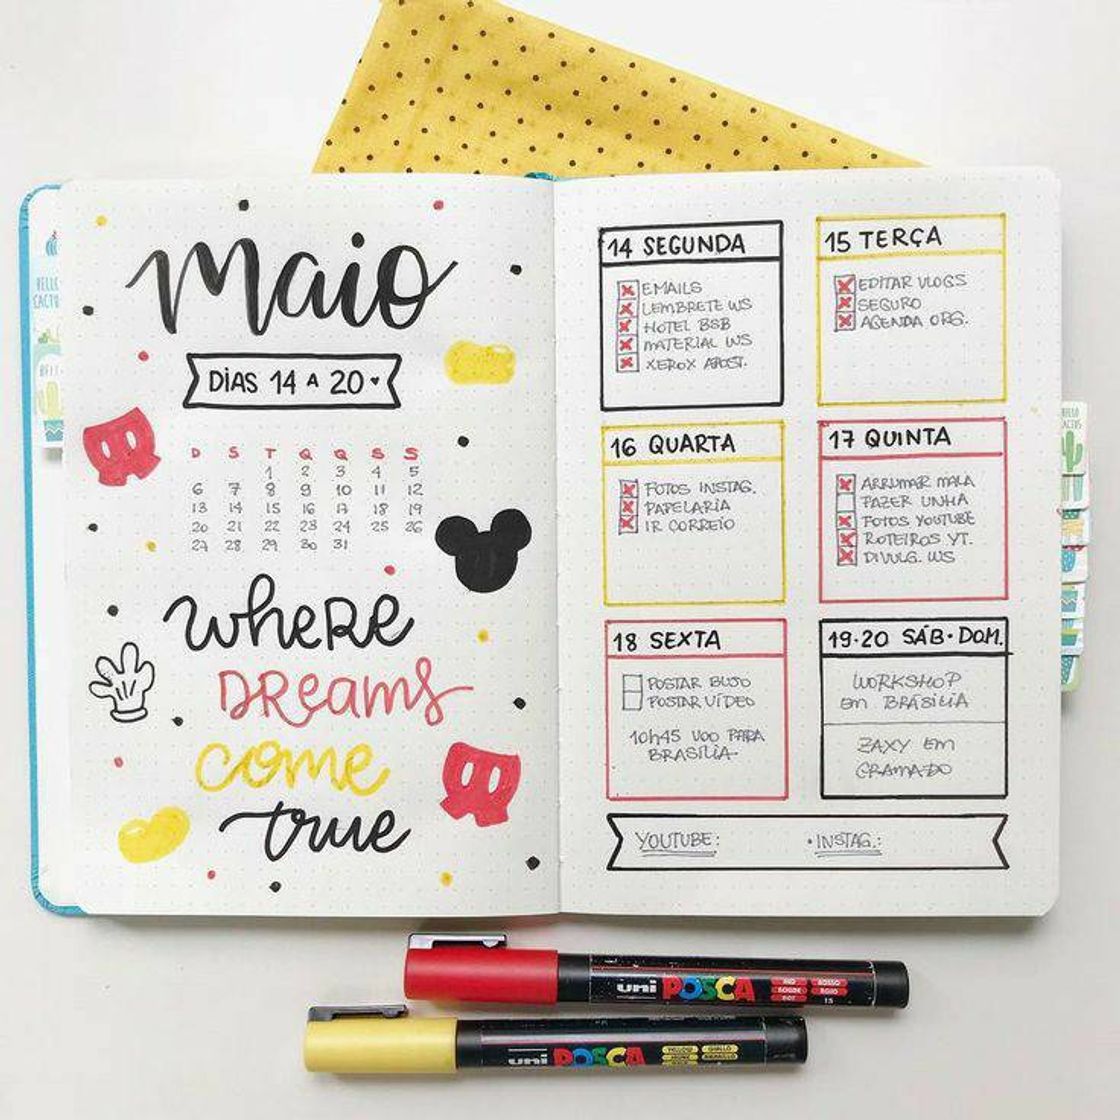 maio
DiAS 14 A 20
D S T Q Q S S
1 2 3 4 5
6 7 8 9 10 11 12
13 14 15 16 17 18 19
20 21 22 23 24 25 26
27 28 29 30 31
wheRe
DReams
come
true
14 SEGUNDA
EMAILS
LEMBRETE WS
HOTEL BSB
MATERIAL WS
XEROX APOST.
15 TERÇA
EDITAR VLOGS
SEGURO
AGENDA ORG.
16 QUARTA
FOTOS INSTAG.
PAPELARIA
IR CORREIO
17 QUINTA
ARRUMAR MALA
FAZER UNHA
FOTOS YOUTUBE
ROTEIROS YT.
DIVULG. WS
18 SEXTA
POSTAR BUJO
POSTAR VÍDEO
10h45 VOO PARA
BRASÍLIA
19·20 SÁB·DOM.
WORKSHOP
Em BRASÍLIA
ZAXY Em
GRAMADO
YOUTUBE: •INSTAG.:
HELLO
CACTUS
HELLO
CACTUS
uni POSCA
uni POSCA